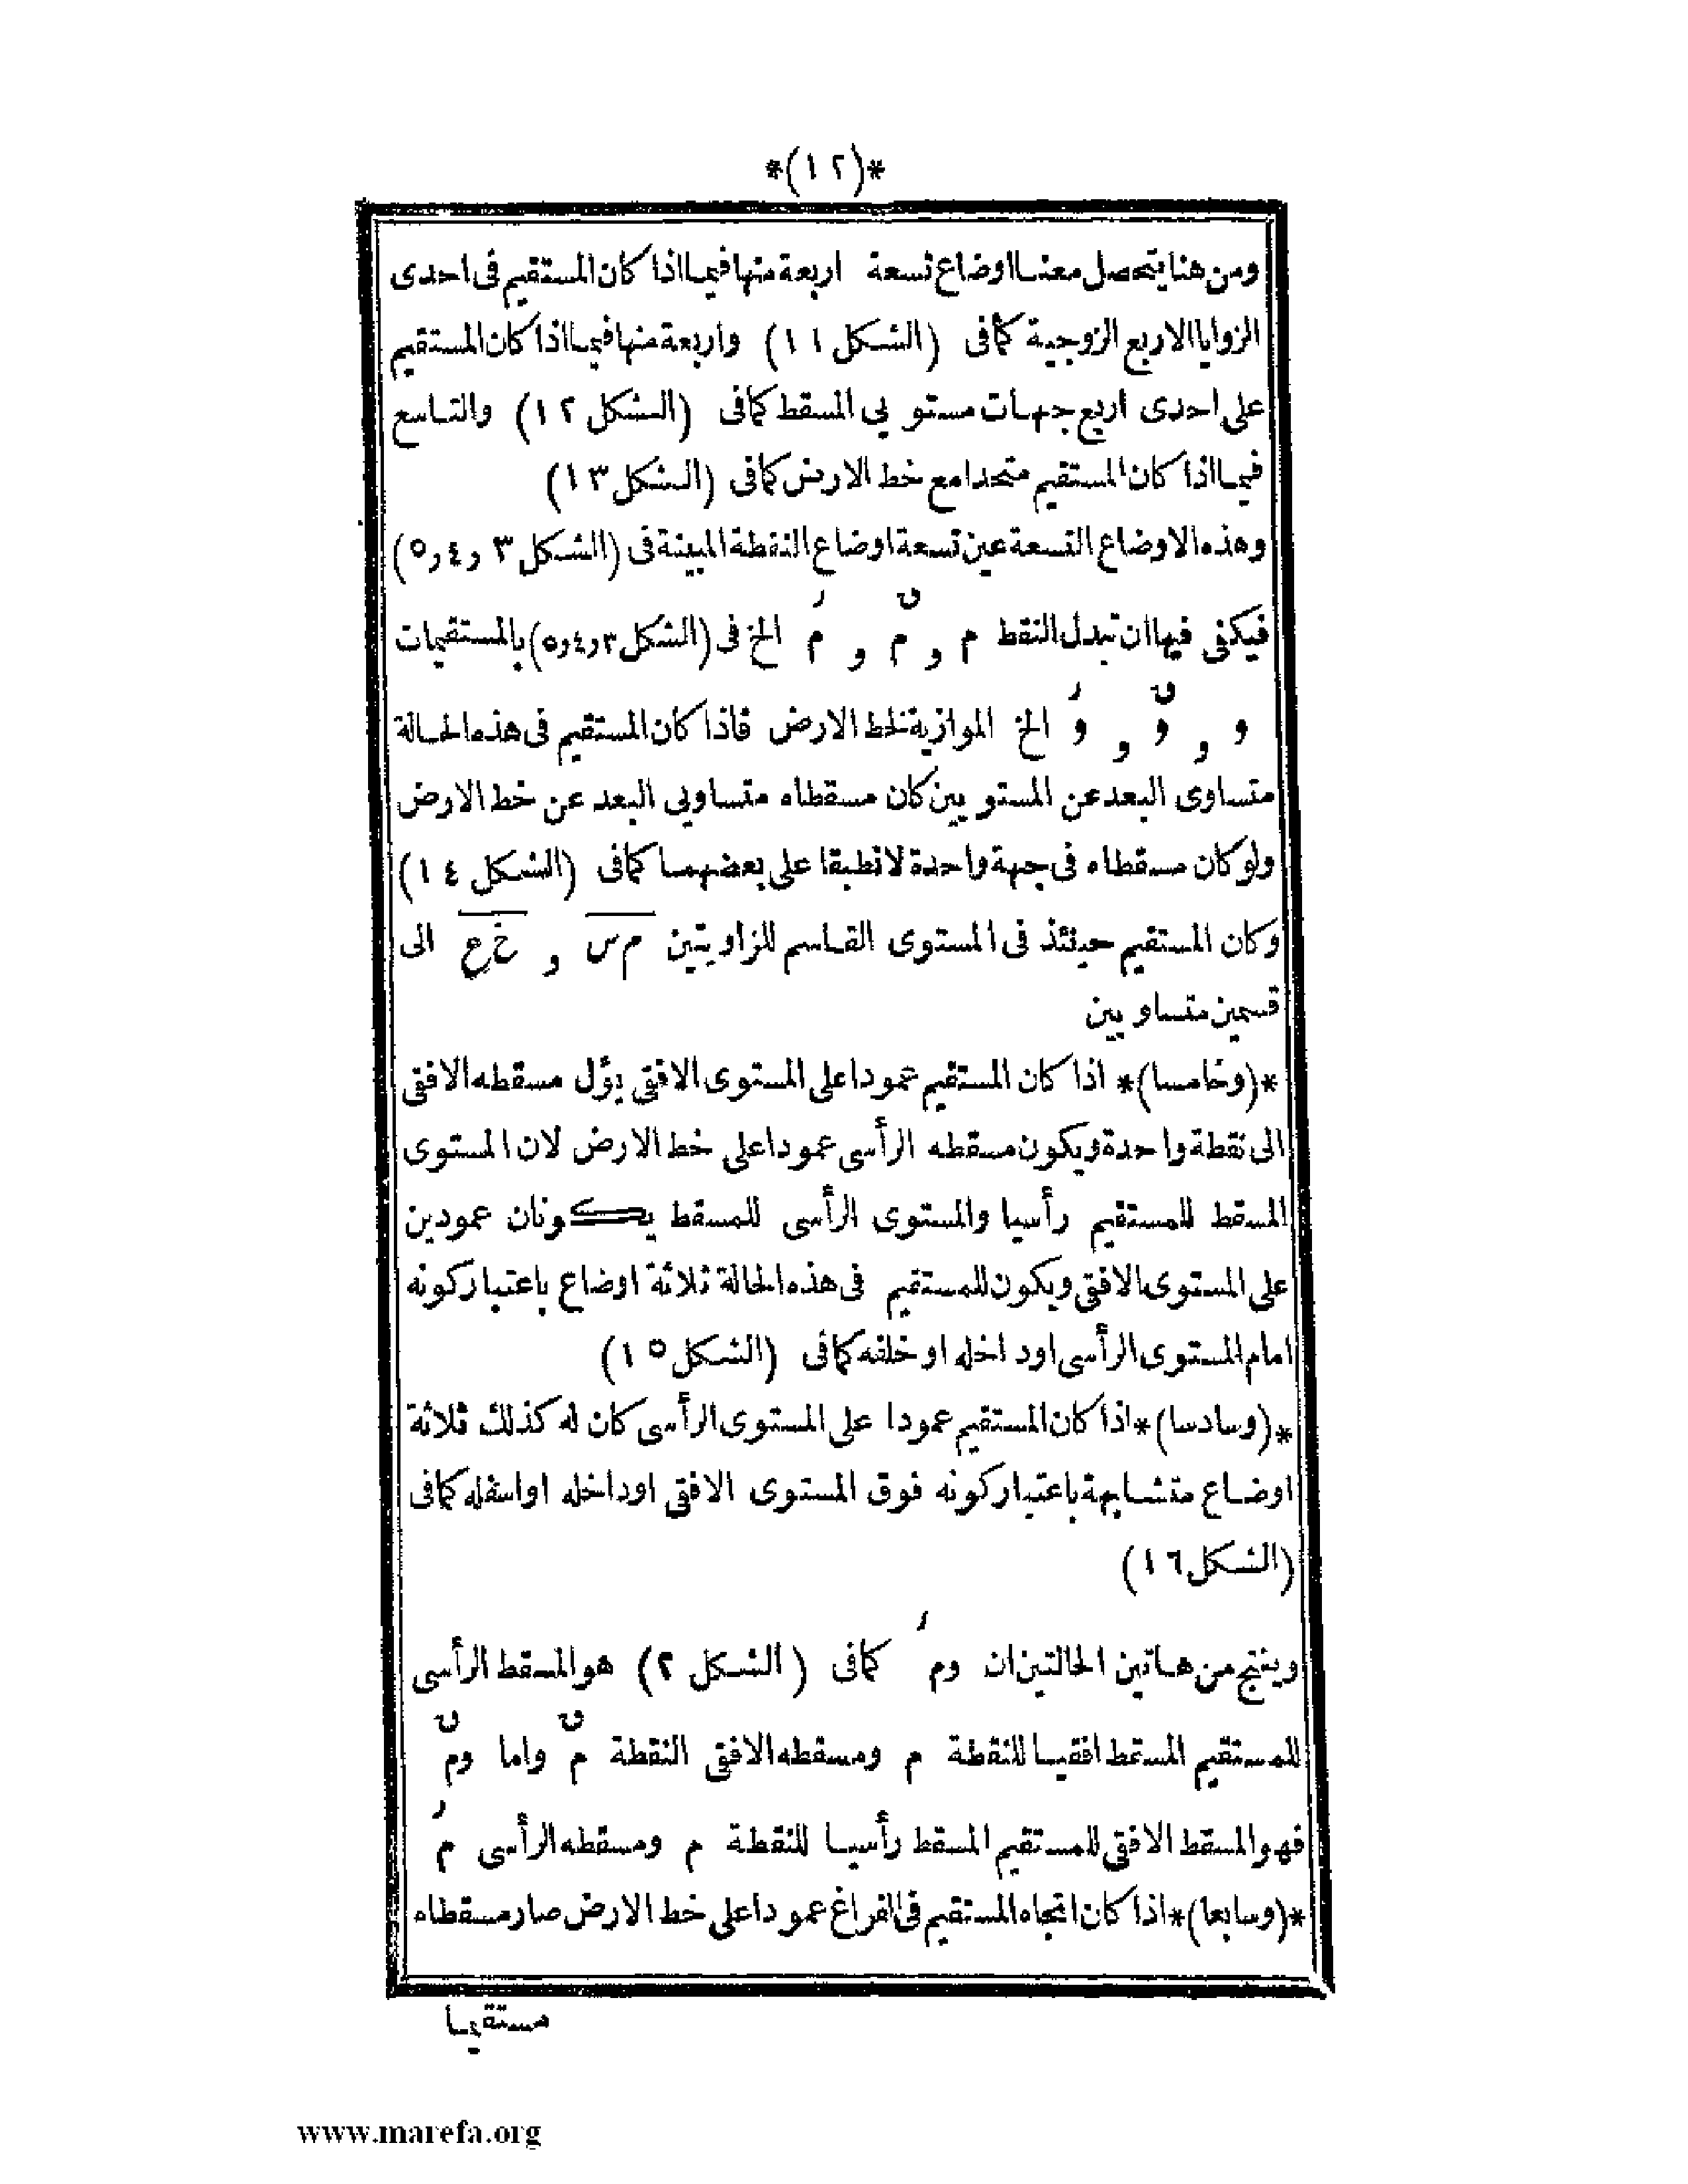 *(١٢)*
ومن هنا يتحصل معنا اوضاع تسعة اربعة منها فيما اذا كان المستقيم فى احدى
الزوايا الاربع الزوجية كمافى (الشكل ١١) واربعة منها فيما اذا كان المستقيم
على احدى اربع جهات مستويى المسقط كمافى (الشكل ١٢) والتاسع
فيما اذا كان المستقيم متحدا مع خط الارض كمافى (الشكل ١٣)
وهذه الاوضاع التسعة عين تسعة اوضاع النقطة المبينة فى (الشكل ٣ و٤ و٥)
فيكفى فيها ان تبدل النقط م و مٯ و مَر الخ فى (الشكل ٣ و٤ و٥) بالمستقيمات
و و وٯ و وَر الخ الموازية لخط الارض فاذا كان المستقيم فى هذه الحالة
متساوى البعد عن المستويين كان مسقطاه متساويى البعد عن خط الارض
ولو كان مسقطاه فى جهة واحدة لانطبقا على بعضهما كمافى (الشكل ١٤)
وكان المستقيم حينئذ فى المستوى القاسم للزاويتين م س و خ ع الى
قسمين متساويين
*(وخامسا)* اذا كان المستقيم عمودا على المستوى الافقى يؤل مسقطه الافقى
الى نقطة واحدة ويكون مسقطه الرأسى عمودا على خط الارض لان المستوى
المسقط للمستقيم رأسيا والمستوى الرأسى للمسقط يكونان عمودين
على المستوى الافقى ويكون للمستقيم فى هذه الحالة ثلاثة اوضاع باعتبار كونه
امام المستوى الرأسى او داخله او خلفه كمافى (الشكل ١٥)
*(وسادسا)* اذا كان المستقيم عمودا على المستوى الرأسى كان له كذلك ثلاثة
اوضاع متشابهة باعتبار كونه فوق المستوى الافقى او داخله او اسفله كمافى
(الشكل ١٦)
وينتج من هاتين الحالتين ان وم َر كمافى (الشكل ٢) هو المسقط الرأسى
للمستقيم المسقط افقيا للنقطة م ومسقطه الافقى النقطة مٯ واما ومٯ
فهو المسقط الافقى للمستقيم المسقط رأسيا للنقطة م ومسقطه الرأسى مَر
*(وسابعا)* اذا كان اتجاه المستقيم فى الفراغ عمودا على خط الارض صار مسقطاه
مستقيما
www.marefa.org